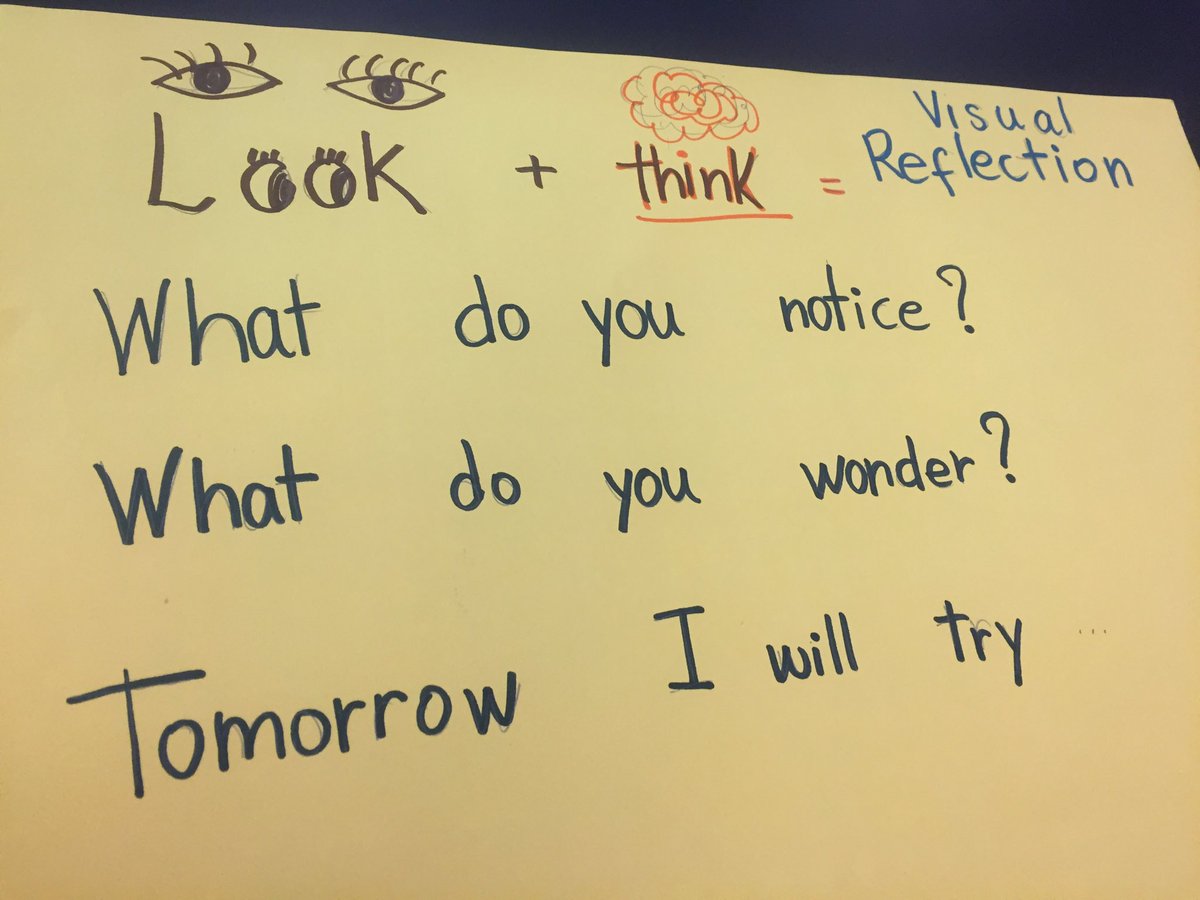 Look + think = Visual Reflection
What do you notice?
What do you wonder?
Tomorrow I will try ...